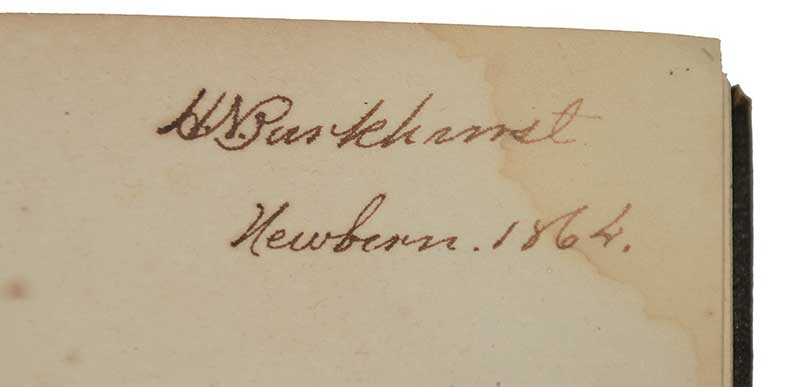 H.N. Parkhurst
Newbern. 1864.